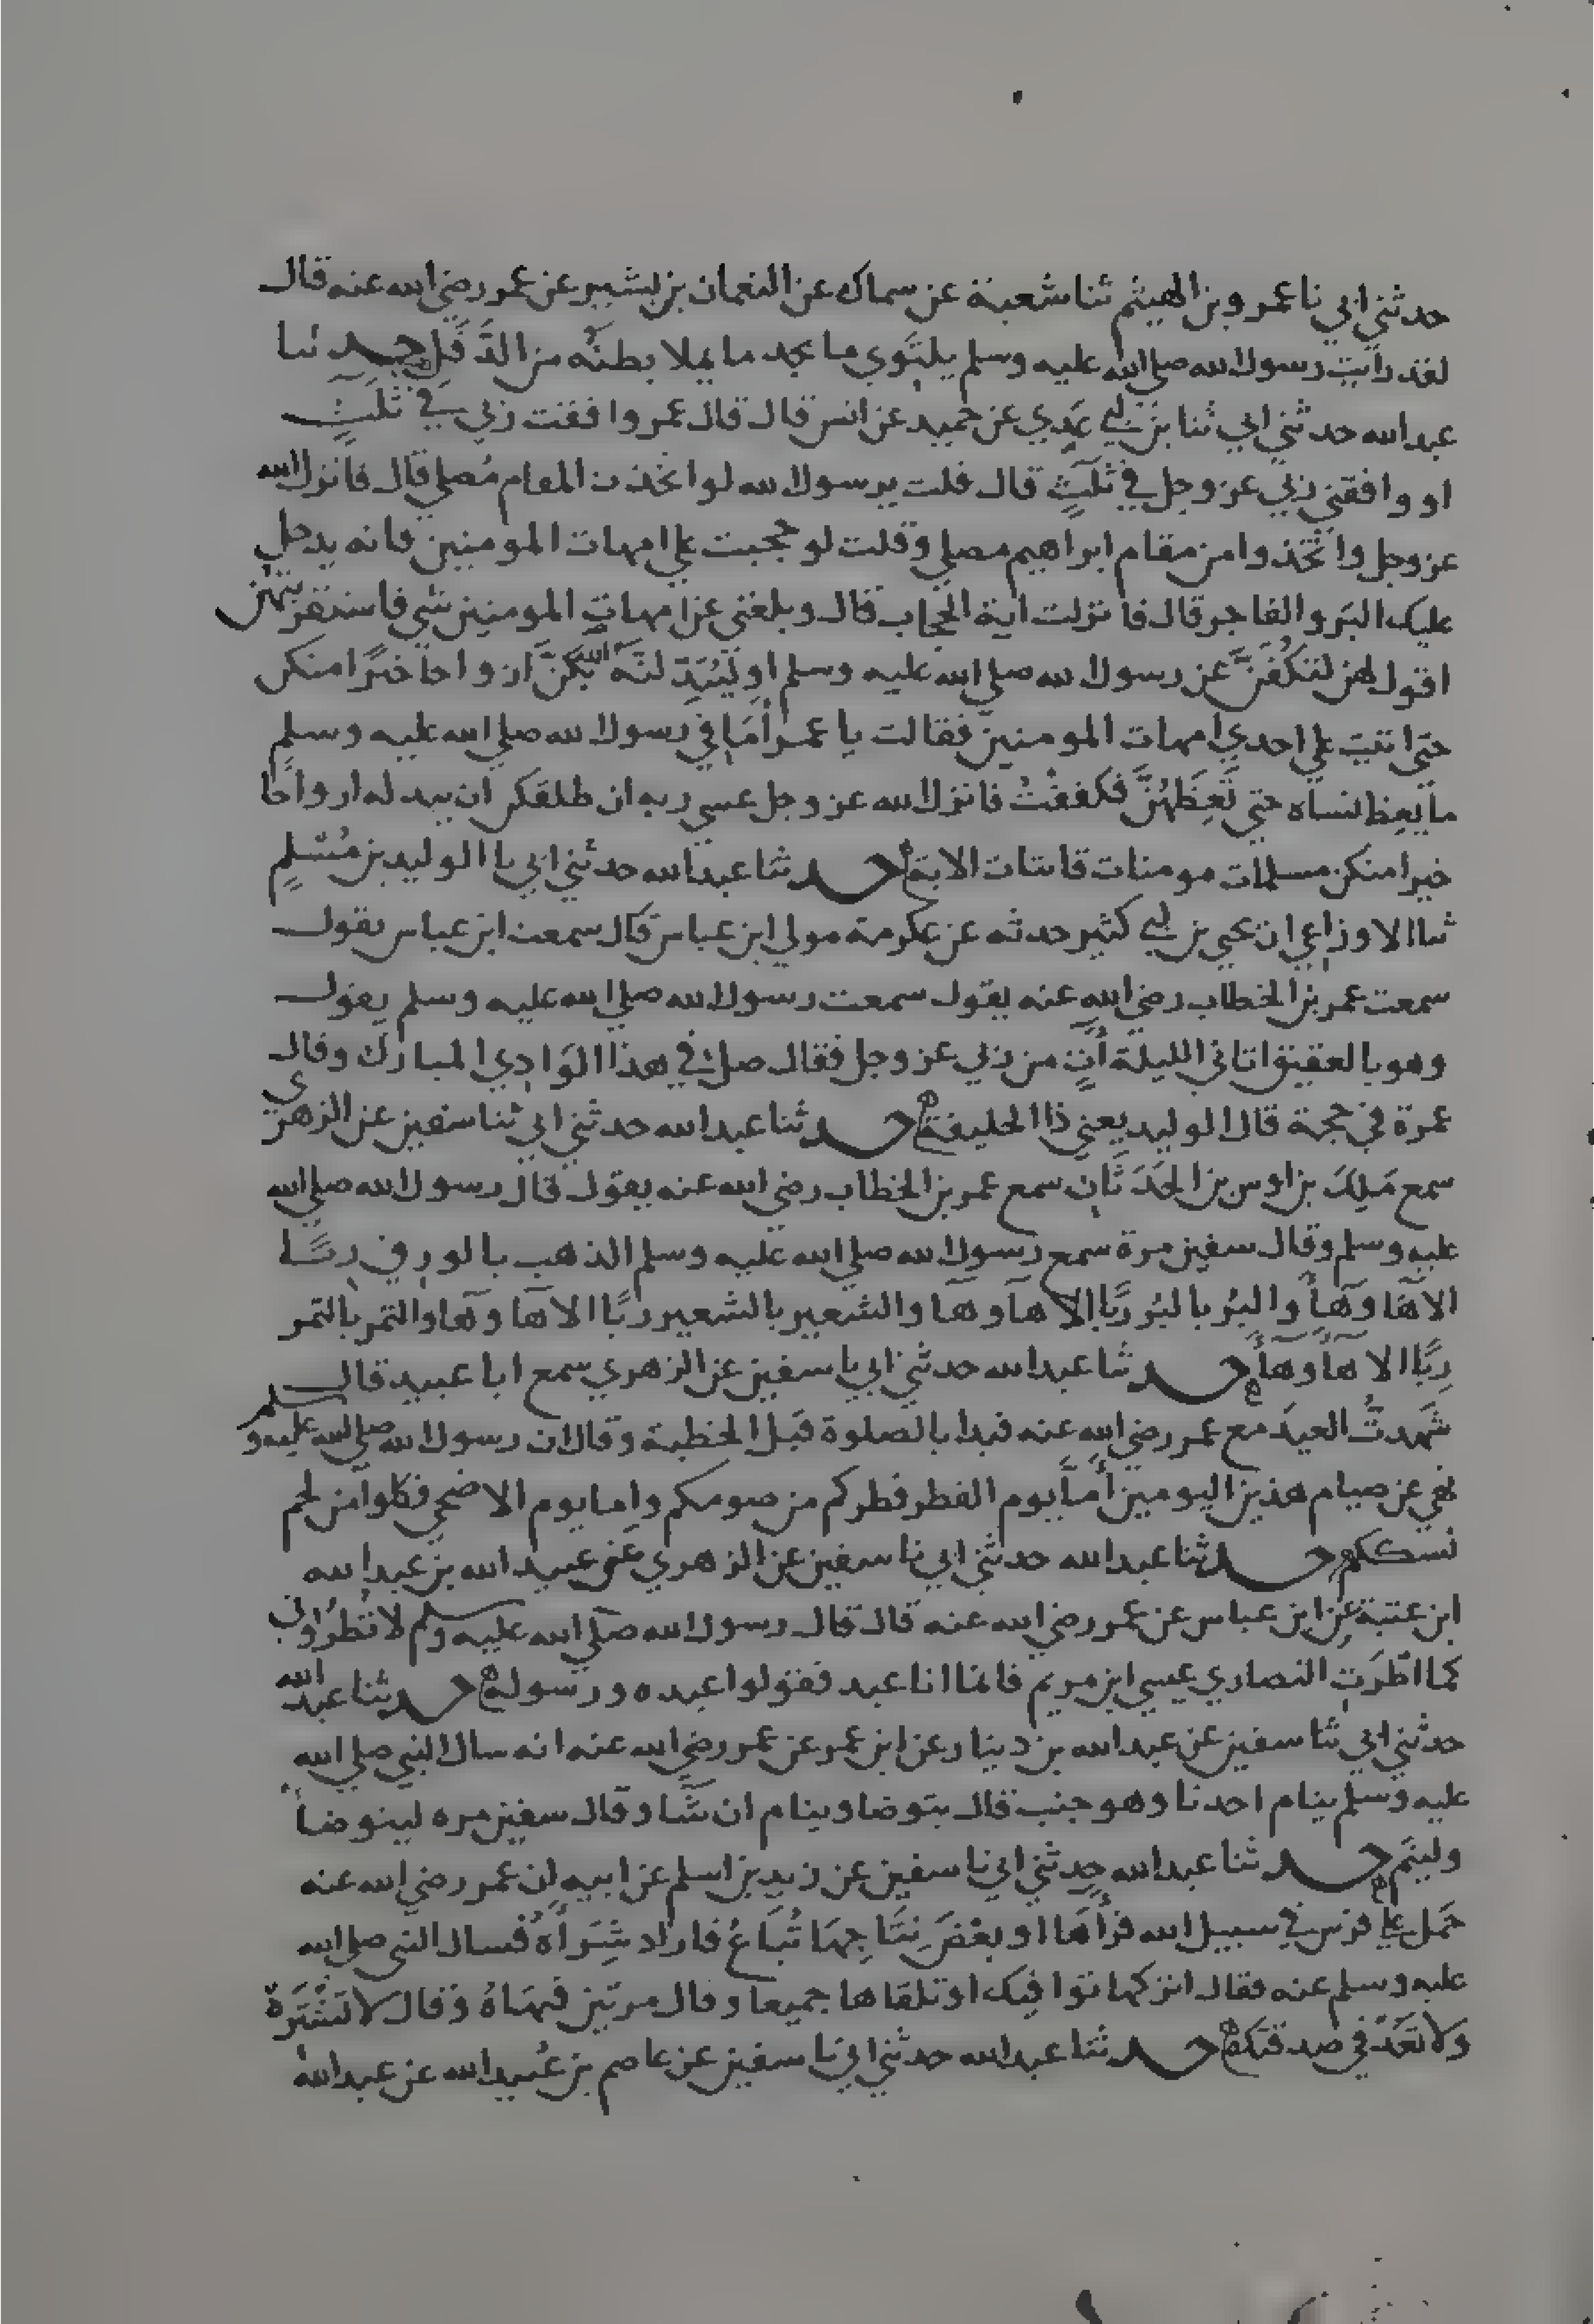 حدثني ابي نا عمرو بن الهيثم ثنا شعبة عن سماك عن النعمان بن بشير عن عمر رضي الله عنه قال
لقد رايت رسول الله صلي الله عليه وسلم يلتوي ما يجد ما يملا بطنه من الدقل حدثنا
عبد الله حدثني ابي ثنا بن ابي عدي عن حميد عن انس قال قال عمر وافقت ربي في ثلث
او وافقني ربي عز وجل في ثلث قال قلت يرسول الله لو اتخذت المقام مصلي قال فانزل الله
عز وجل واتخذوا من مقام ابراهيم مصلي وقلت لو حجبت علي امهات المومنين فانه يدخل
عليك البر والفاجر قال فانزلت اية الحجاب قال وبلغني عن امهات المومنين شي فاستقريتهن
اقول لهن لتكفن عن رسول الله صلي الله عليه وسلم او ليبدلنه الله بكن ازواجا خيرا منكن
حتي اتيت علي احدي امهات المومنين فقالت يا عمر أما في رسول الله صلي الله عليه وسلم
ما يعظ نساه حتي تعظهن فكففت فانزل الله عز وجل عسي ربه ان طلقكن ان يبدله ازواجا
خيرا منكن مسلمات مومنات قانتات الاية حدثنا عبد الله حدثني ابي نا الوليد بن مسلم
ثنا الاوزاعي ان يحيي بن ابي كثير حدثه عن عكرمة مولي ابن عباس قال سمعت ابن عباس يقول
سمعت عمر بن الخطاب رضي الله عنه يقول سمعت رسول الله صلي الله عليه وسلم يقول
وهو بالعقيق اتاني الليلة آت من ربي عز وجل فقال صل في هذا الوادي المبارك وقال
عمرة في حجة قال الوليد يعني ذا الحليفة حدثنا عبد الله حدثني ابي ثنا سفين عن الزهري
سمع ملك بن اوس بن الحدثان سمع عمر بن الخطاب رضي الله عنه يقول قال رسول الله صلي الله
عليه وسلم وقال سفين مرة سمع رسول الله صلي الله عليه وسلم الذهب بالورق ربا
الا هآ وهآ والبر بالبر ربا الا هآ وهآ والشعير بالشعير ربا الا هآ وهآ والتمر بالتمر
ربا الا هآ وهآ حدثنا عبد الله حدثني ابي نا سفين عن الزهري سمع ابا عبيد قال
شهدت العيد مع عمر رضي الله عنه فبدا بالصلوة قبل الخطبة وقال ان رسول الله صلي الله عليه وسلم
نهي عن صيام هذين اليومين أما يوم الفطر ففطركم من صومكم واما يوم الاضحي فكلوا من لحم
نسككم حدثنا عبد الله حدثني ابي نا سفين عن الزهري عن عبيد الله بن عبد الله
ابن عتبة عن ابن عباس عن عمر رضي الله عنه قال قال رسول الله صلي الله عليه وسلم لا تطروني
كما اطرت النصاري عيسي ابن مريم فانما انا عبد فقولوا عبده ورسوله حدثنا عبد الله
حدثني ابي ثنا سفين عن عبد الله بن دينار عن ابن عمر عن عمر رضي الله عنه انه سال النبي صلي الله
عليه وسلم ينام احدنا وهو جنب قال يتوضا وينام ان شا وقال سفين مره ليتوضأ
ولينم حدثنا عبد الله حدثني ابي نا سفين عن زيد بن اسلم عن ابيه ان عمر رضي الله عنه
حمل علي فرس في سبيل الله فرأها او بعض نتاجها تباع فاراد شرآه فسال النبي صلي الله
عليه وسلم عنه فقال اتركها توافيك او تلقاها جميعا وقال مرتين فنهاه وقال لا تشتره
ولا تعد في صدقتك حدثنا عبد الله حدثني ابي نا سفين عن عاصم بن عبيد الله عن عبد الله